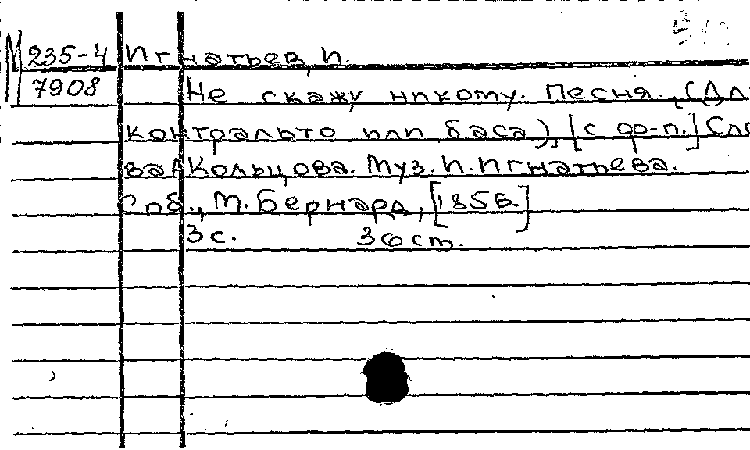 М 235-4 Игнатьев, И.
7908 Не скажу никому. Песня. (Дл
контральто или баса), [с ф-п.] Сло
ва А. Кольцова. Муз. И. Игнатьева.
Спб., М. Бернард, [185
3 с. 3 экт.